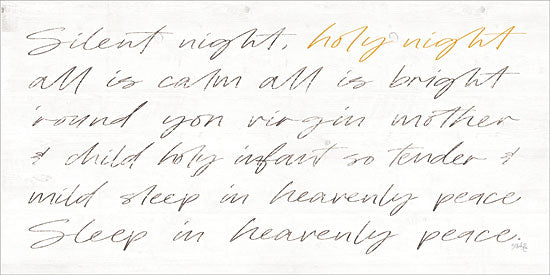 Silent night, holy night
all is calm all is bright
'round yon virgin mother
& child holy infant so tender &
mild sleep in heavenly peace
Sleep in heavenly peace.